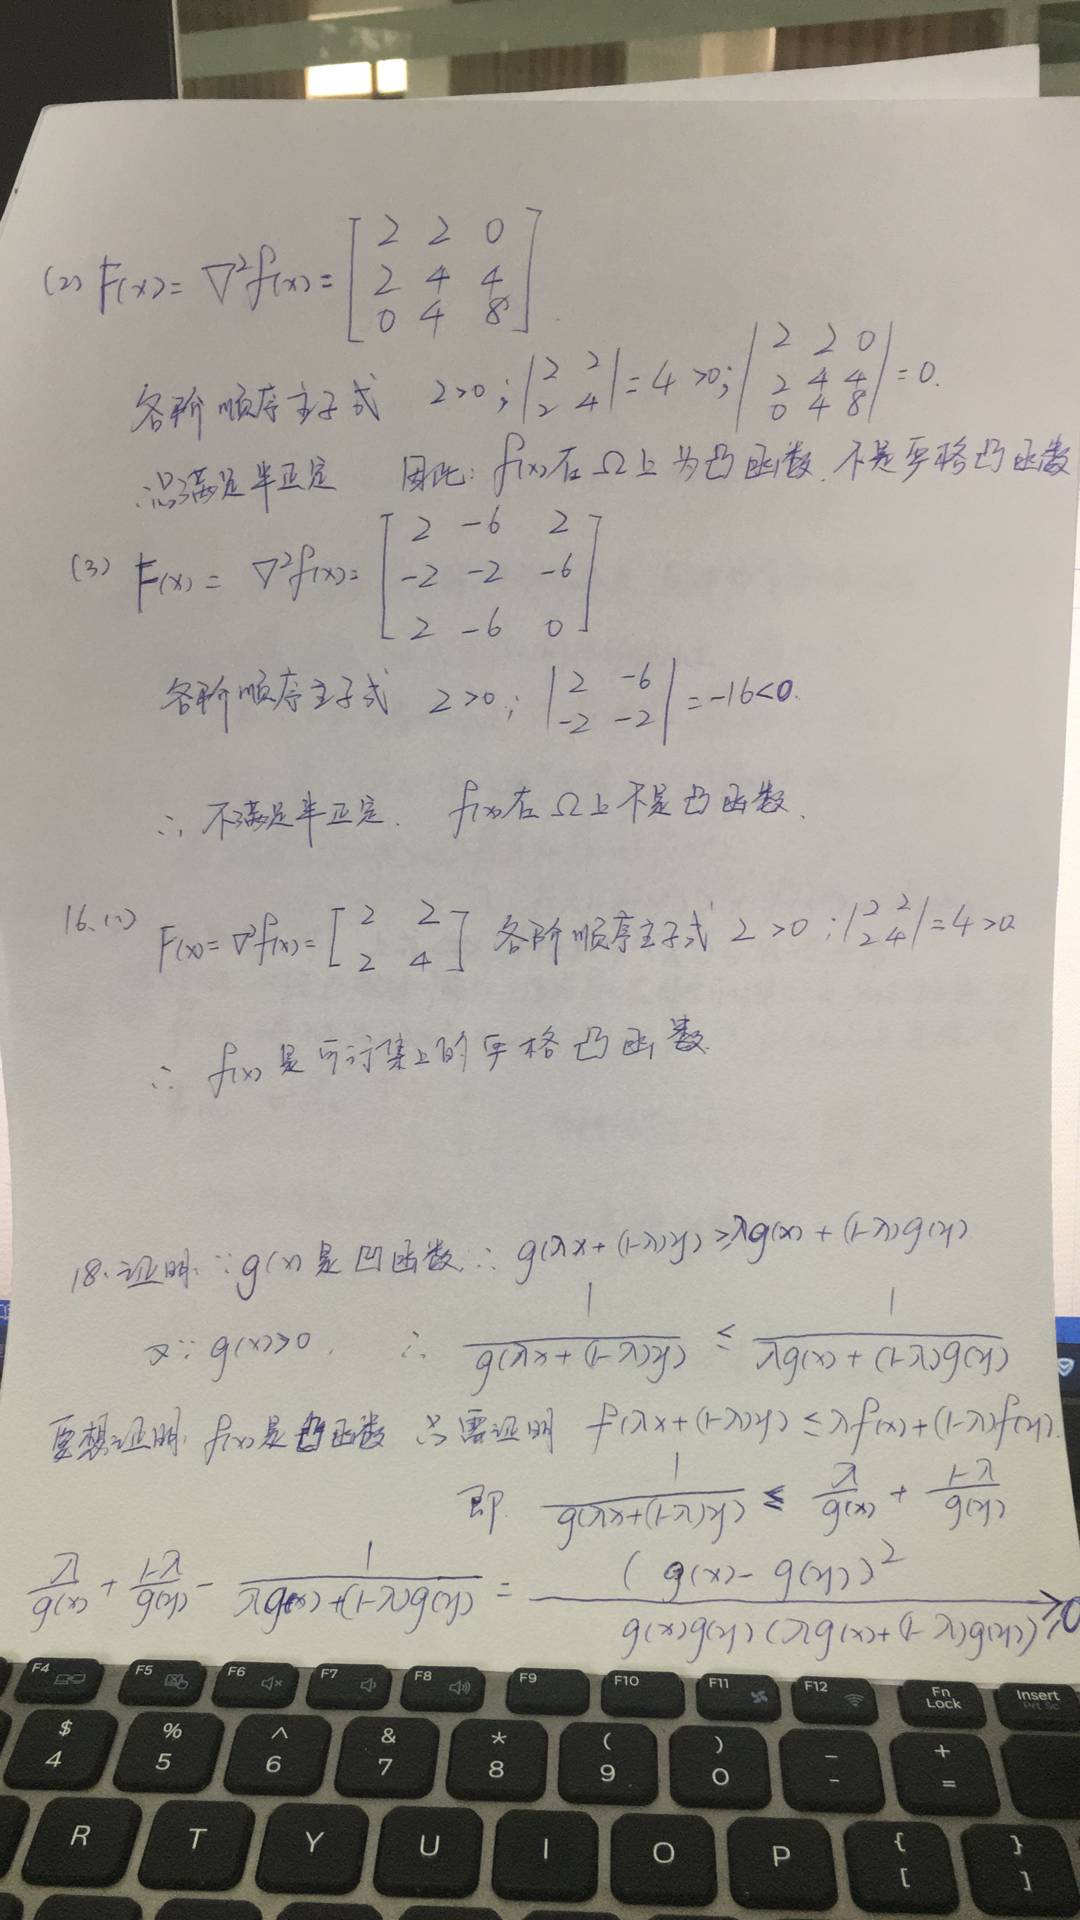 (2) F(x)= ∇²f(x)= [2 2 0; 2 4 4; 0 4 8].
各阶顺序主子式 2>0; |2 2; 2 4|=4>0; |2 2 0; 2 4 4; 0 4 8|=0.
∴满足半正定 因此: f(x)在Ω上为凸函数.不是严格凸函数
(3) F(x)= ∇²f(x)= [2 -6 2; -2 -2 -6; 2 -6 0]
各阶顺序主子式 2>0; |2 -6; -2 -2|=-16<0.
∴ 不满足半正定. f(x)在Ω上不是凸函数.
16.(1) F(x)=∇²f(x)= [2 2; 2 4] 各阶顺序主子式 2>0; |2 2; 2 4|=4>0
∴ f(x)是可行集上的严格凸函数.
18.证明: ∵g(x)是凹函数∴ g(λx+(1-λ)y)≥λg(x)+(1-λ)g(y)
又∵ g(x)>0, ∴ 1/g(λx+(1-λ)y) ≤ 1/λg(x)+(1-λ)g(y)
要想证明 f(x)是凸函数 只需证明 f(λx+(1-λ)y)≤λf(x)+(1-λ)f(y).
即 1/g(λx+(1-λ)y) ≤ λ/g(x) + 1-λ/g(y)
λ/g(x) + 1-λ/g(y) - 1/λg(x)+(1-λ)g(y) = (g(x)-g(y))²/g(x)g(y)(λg(x)+(1-λ)g(y)) ≥0
F4 F5 F6 F7 F8 F9 F10 F11 F12 Fn Lock Insert Prt Sc
$ % ^ & * ( ) - +
4 5 6 7 8 9 0 - =
R T Y U I O P { }
[ ]